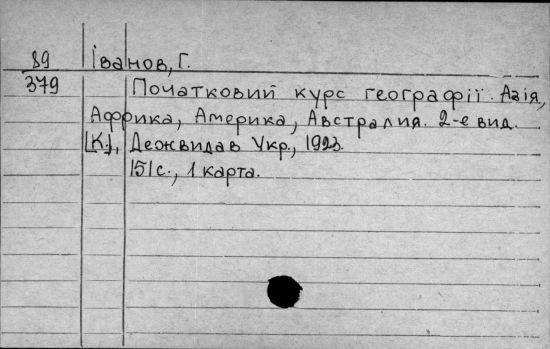 89 Іванов, Г.
379 Початковий курс географії. Азія,
Африка, Америка, Австралия. 2-е вид.
[К.], Дежвидав Укр., 1923.
151 с., 1 карта.